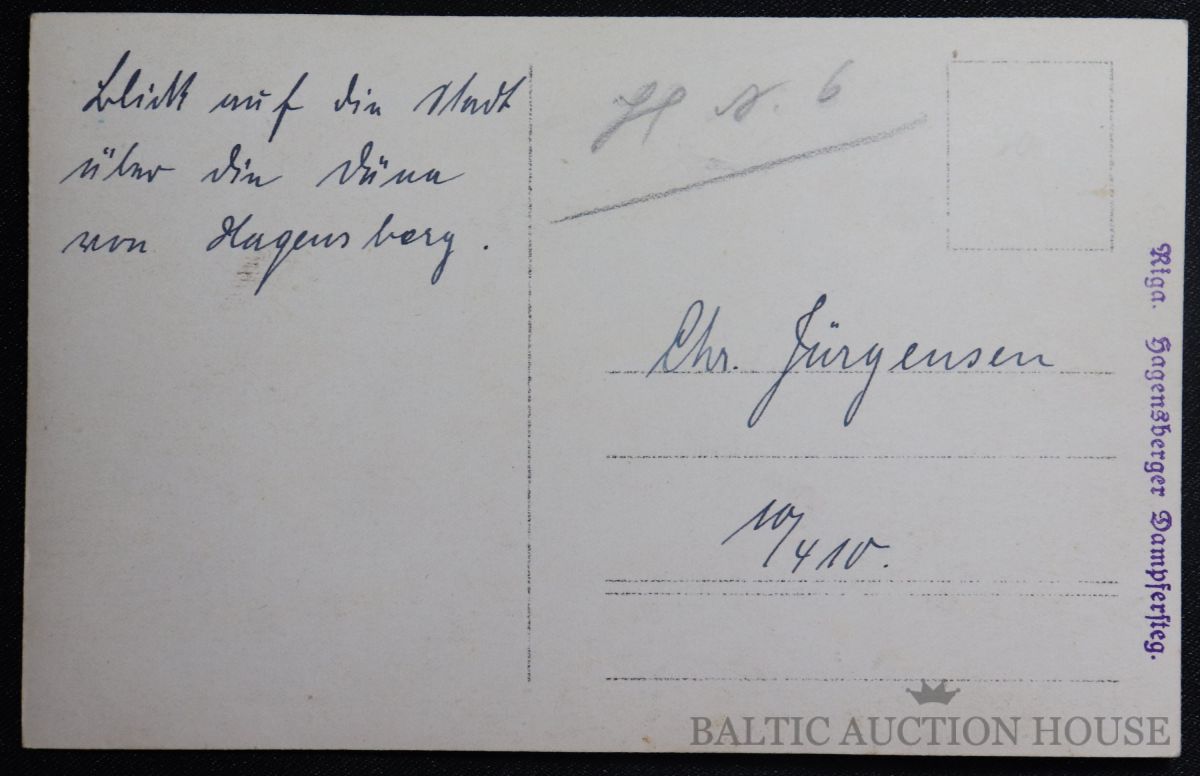 Blick auf die Stadt
über die Düna
von Hagensberg.
N. 6
Chr. Jürgensen
10/4 10.
Riga. Hagensberger Dampfersteg.
BALTIC AUCTION HOUSE